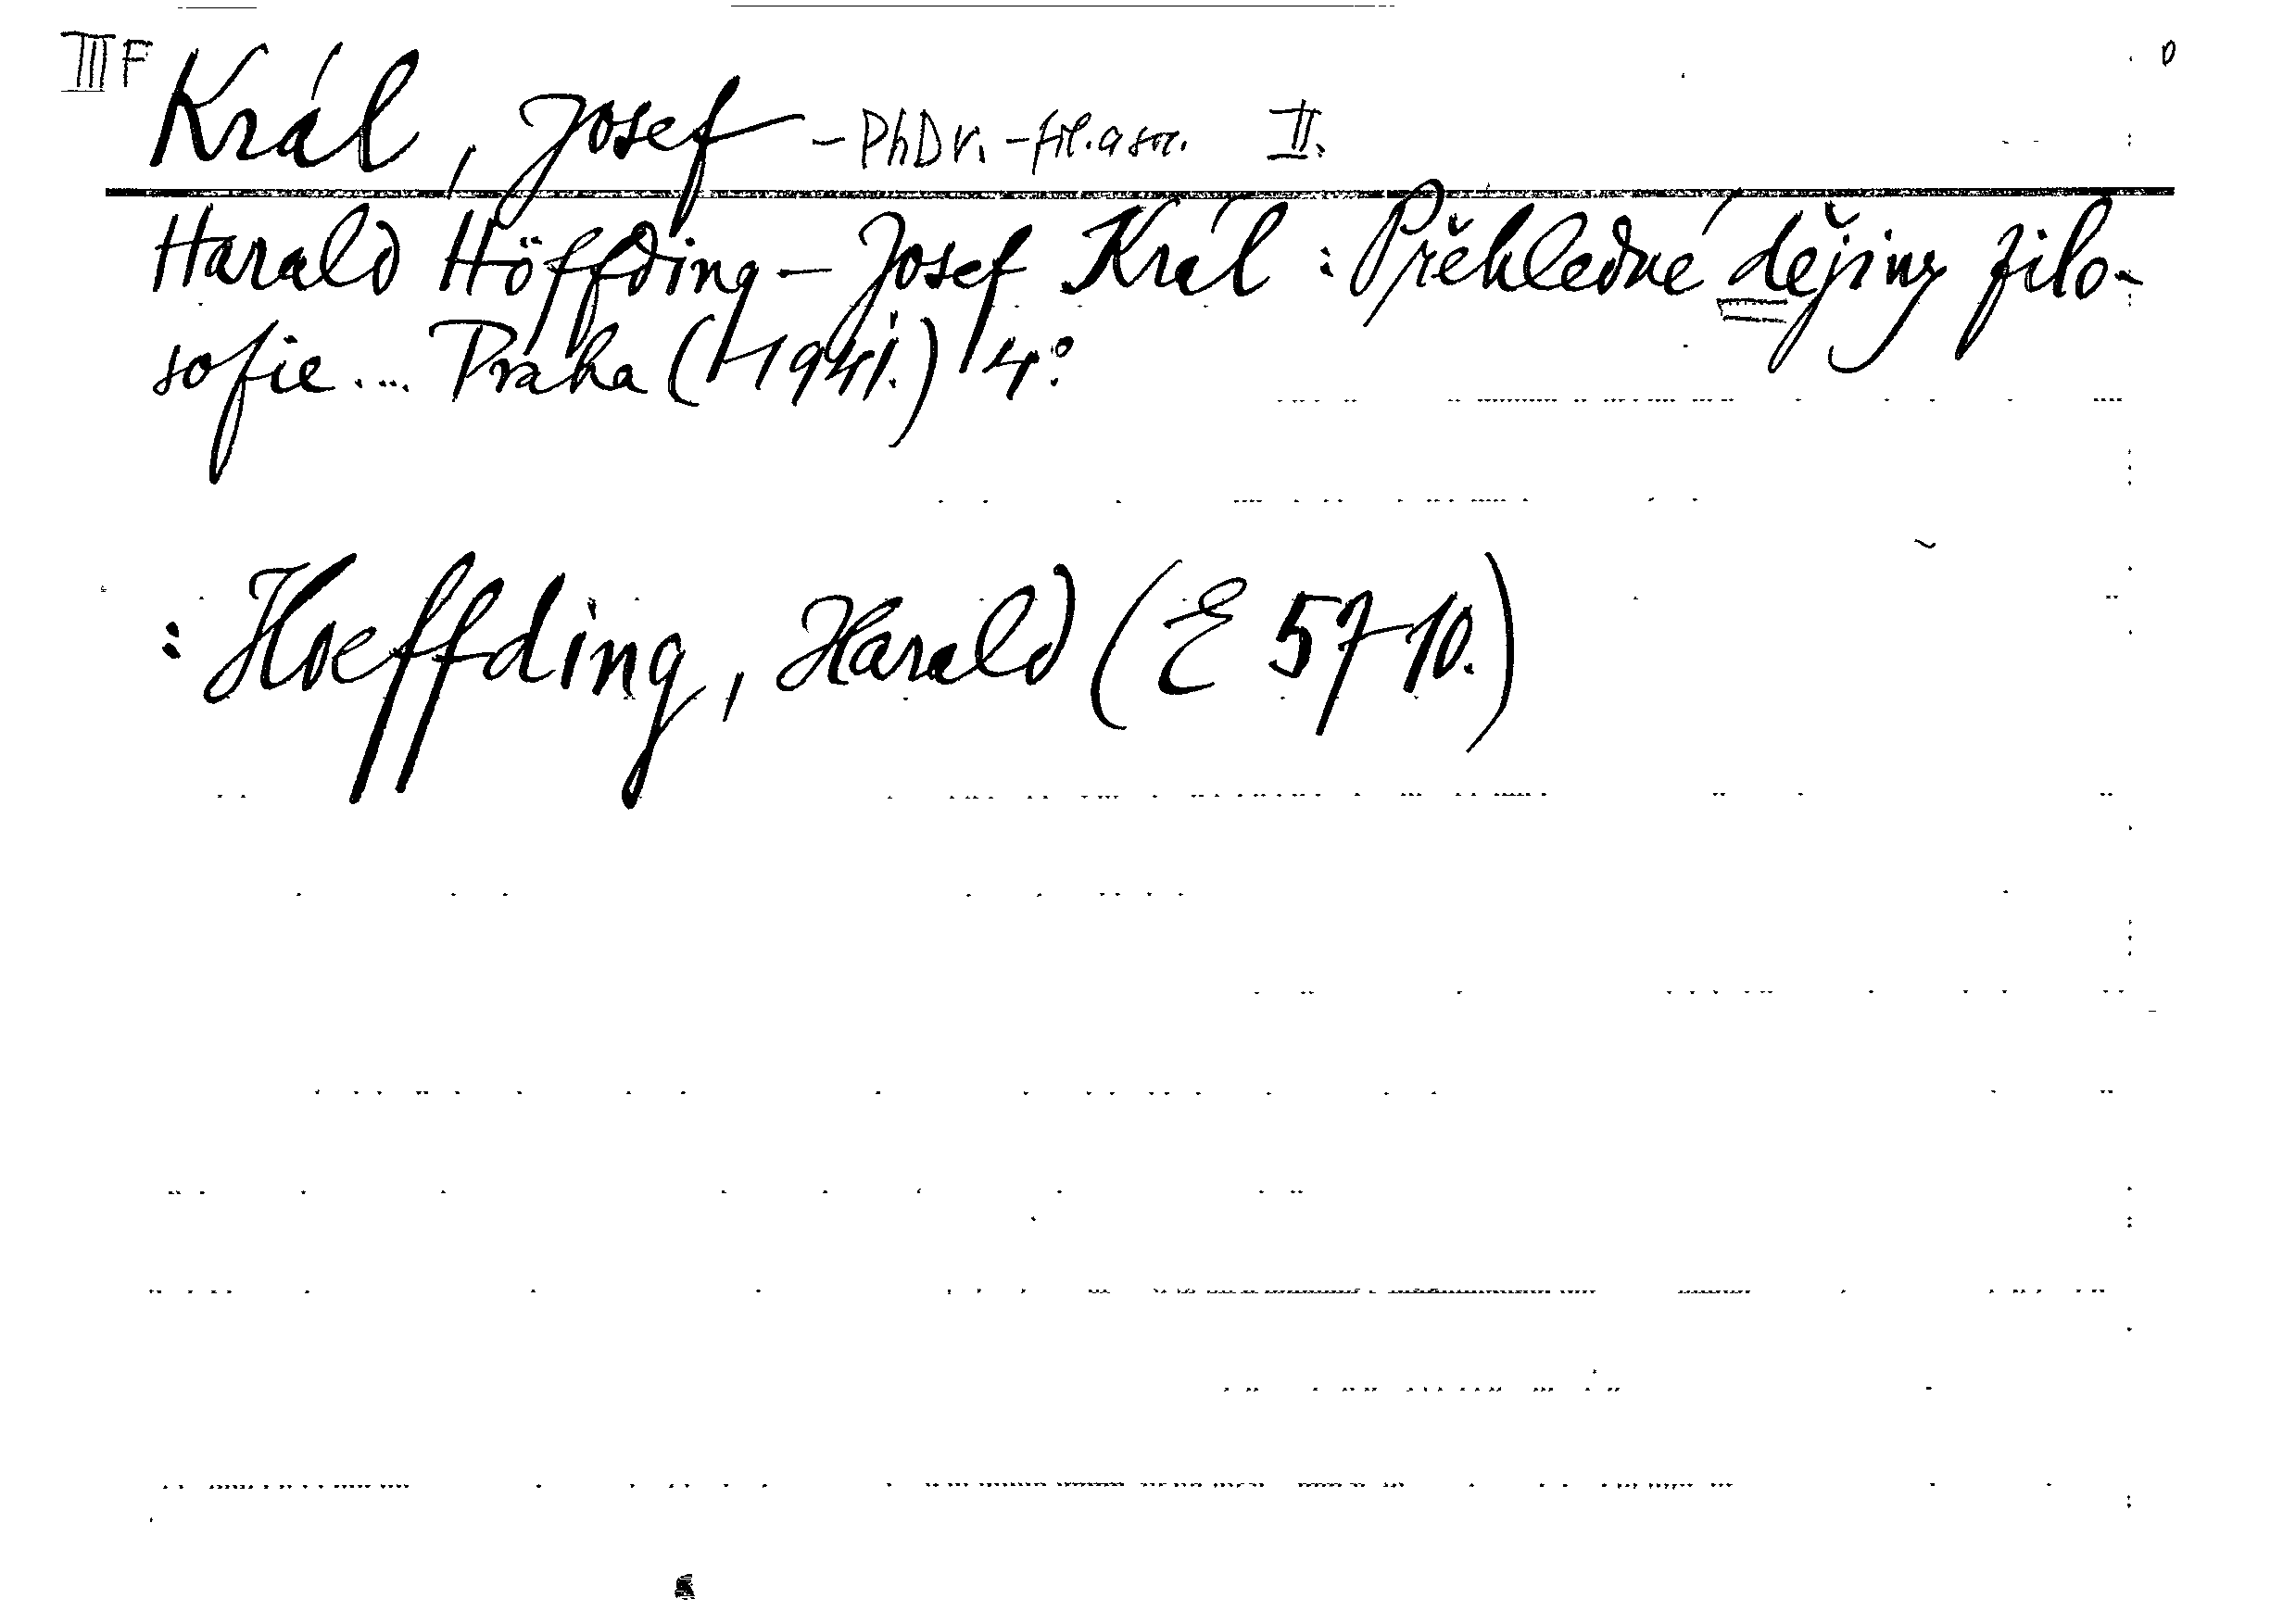 III F
Král, Josef - PhDr. - fil. a soc. II.
Harald Höffding - Josef Král : Přehledné dějiny filo-
sofie .... Praha (1941.) 4°
: Hoeffding, Harald (E 5710.)